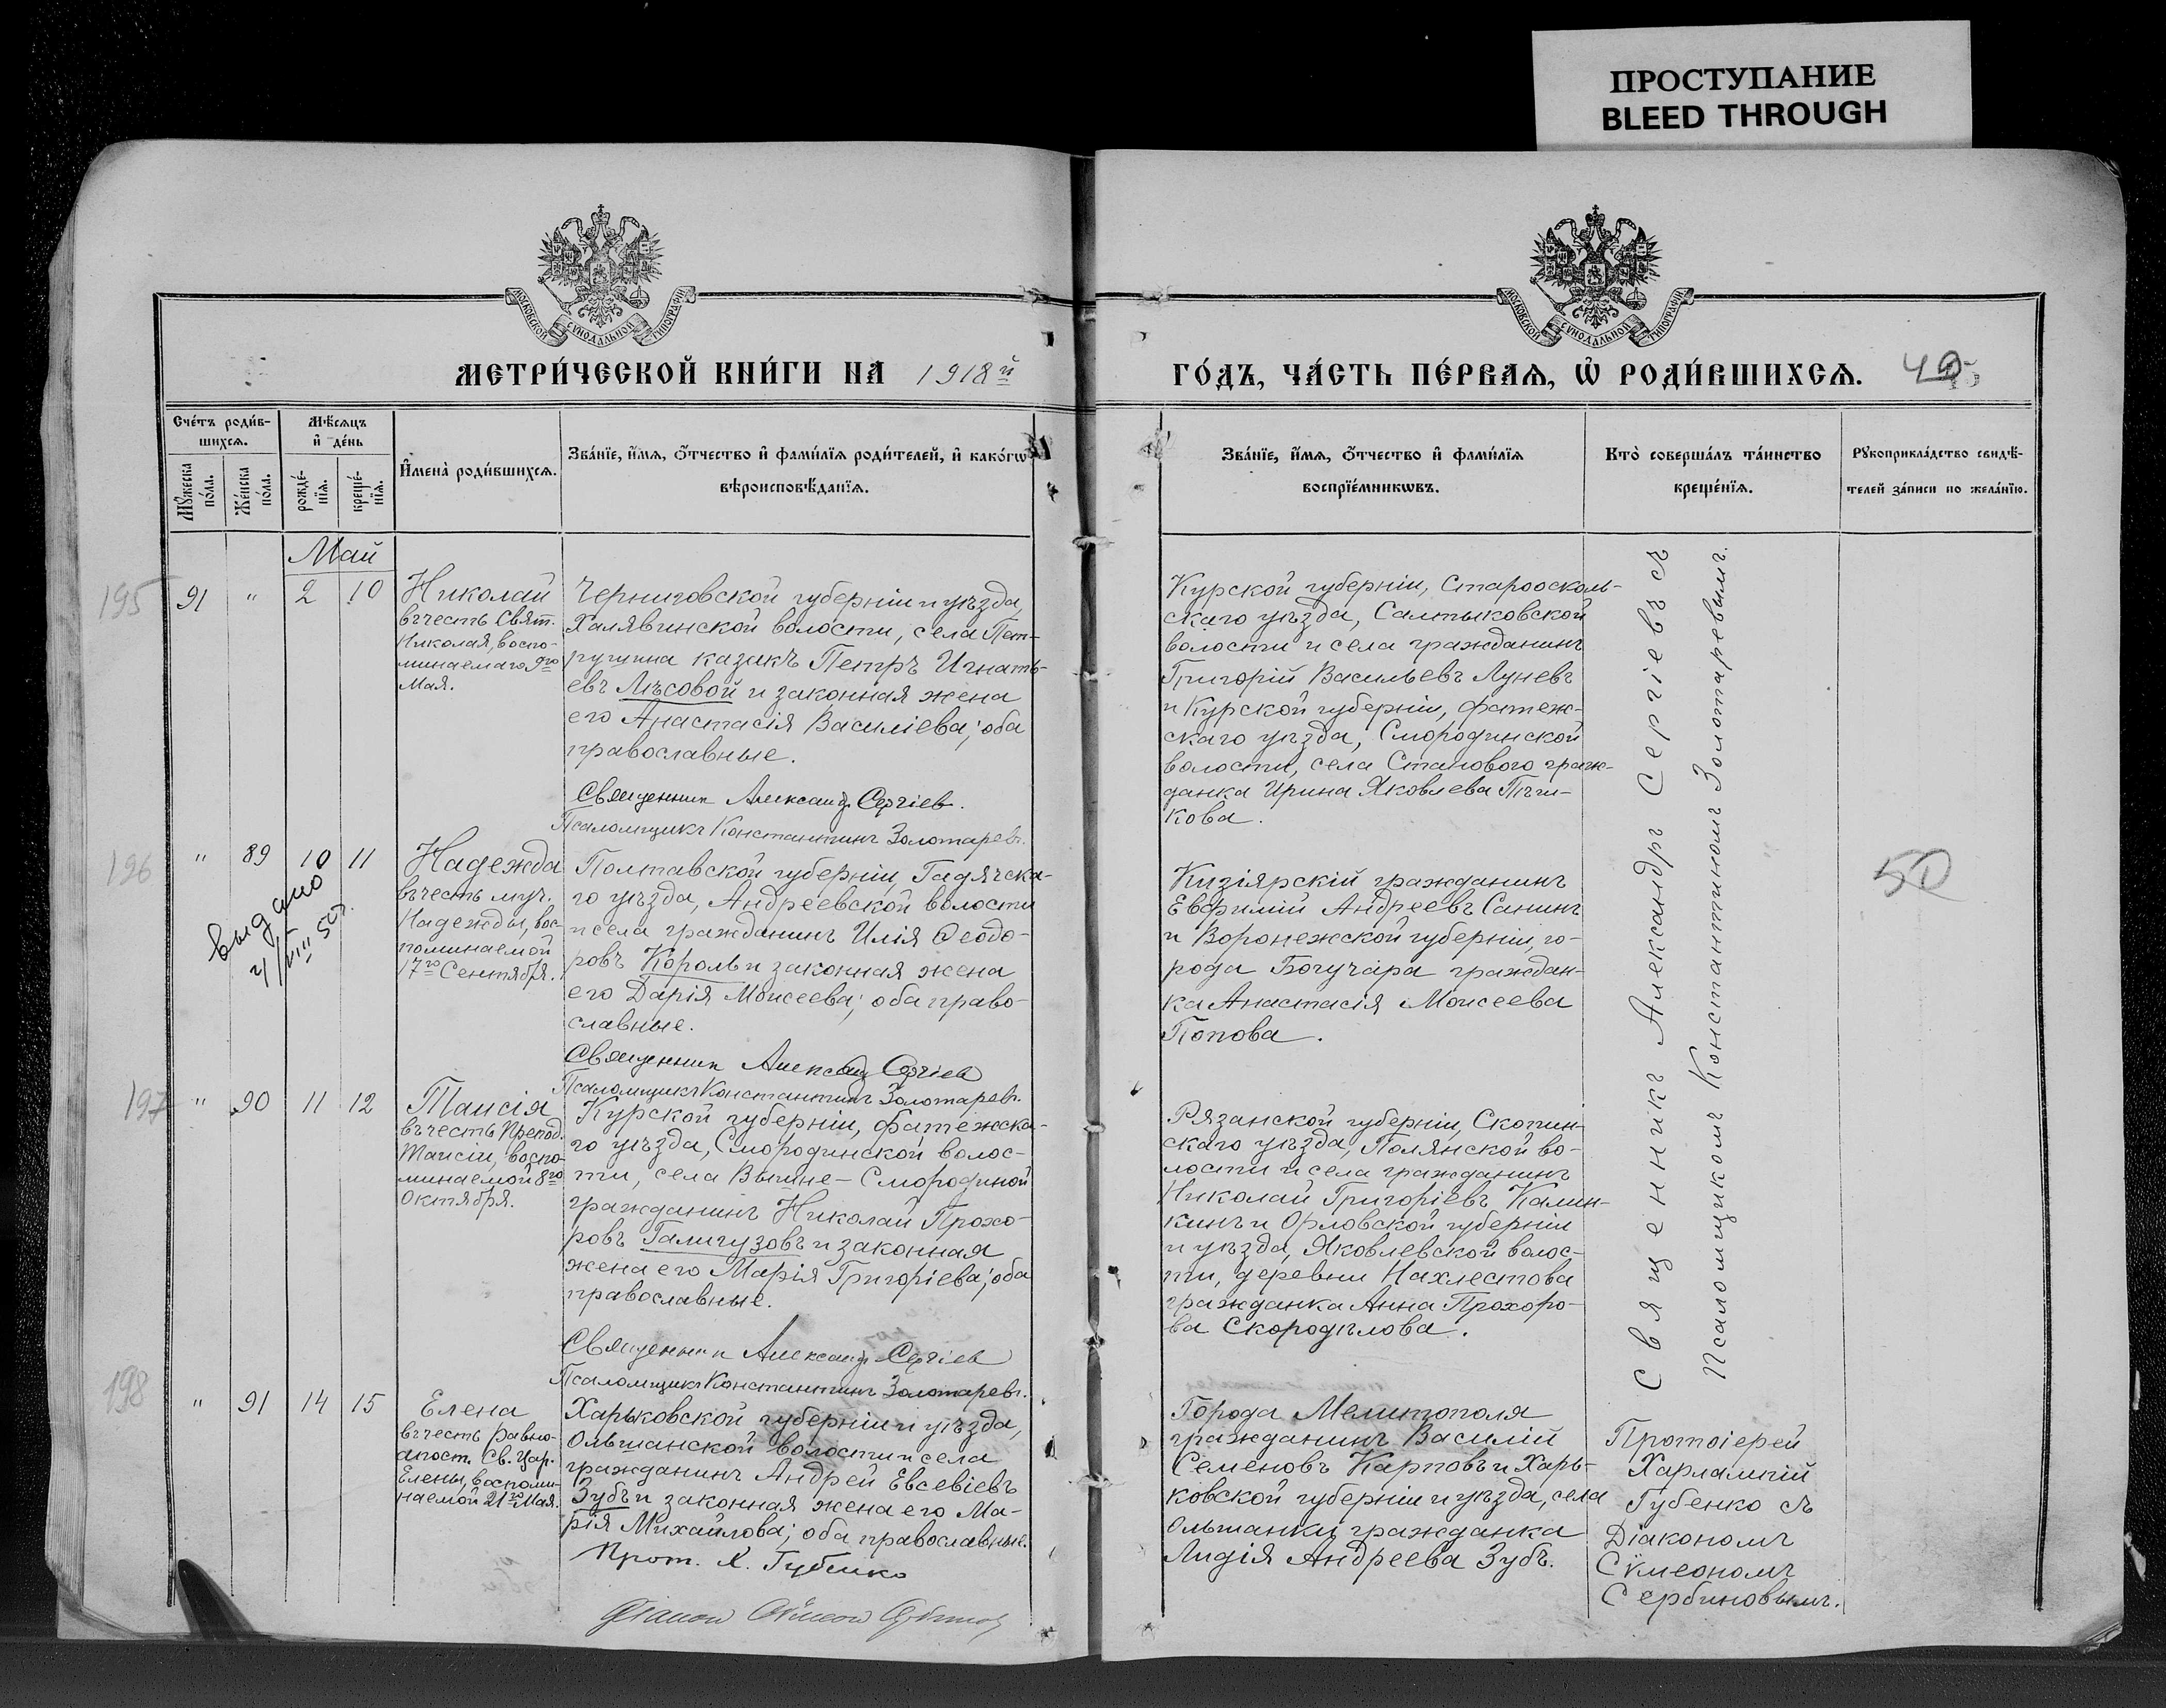 ПРОСТУПАНИЕ
BLEED THROUGH
МОСКОВСКОЙ СѴНОДАЛЬНОЙ ТИПОГРАФІИ
МОСКОВСКОЙ СѴНОДАЛЬНОЙ ТИПОГРАФІИ
МЕТРИ́ЧЕСКОЙ КНИ́ГИ НА 1918й
ГО́ДЪ, ЧА́СТЬ ПЕ́РВАЯ, Ѡ҆ РОДИ́ВШИХСЯ.
Сче́тъ роди́в-
шихся.
Мѣ́сяцъ
и҆ де́нь
Мꙋ́жеска
по́ла.
Же́нска
по́ла.
рожде́-
нїя.
креще́-
нїя.
И҆мена̀ роди́вшихся.
Зва́нїе, и҆́мя, ѻ҆́тчество и҆ фами́лїя роди́телей, и҆ како́гѡ
вѣроисповѣ́данїя.
Зва́нїе, и҆́мя, ѻ҆́тчество и҆ фами́лїя
воспрїе́мникѡвъ.
Кто̀ соверша́лъ та́инство
креще́нїя.
Рꙋкоприкла́дство свидѣ́-
телей за́писи по жела́нїю.
Май
195
91 " 2 10
Николай
въ честь Свят.
Николая, воспо-
минаемаго 9го
Мая.
Черниговской губерніи и уѣзда,
Халявинской волости, села Пет-
рушина казакъ Петръ Игнать-
евъ Лѣсовой и законная жена
его Анастасія Василіева; оба
православные.
Священник Александр Сергіев.
Псаломщикъ Константинъ Золотаревъ.
Курской губерніи, Старооcколь-
скаго уѣзда, Салтыковской
волости и села гражданинъ
Григорій Васильевъ Луневъ
и Курской губерніи, Фатеж-
скаго уѣзда, Смородинской
волости, села Станового граж-
данка Ирина Яковлева Пѣни-
кова.
196
" 89 10 11
выдано
Надежда
въ честь муч.
Надежды, вос-
поминаемой
17го Сентября.
Полтавской губерніи, Гадячска-
го уѣзда, Андреевской волости
и села гражданинъ Илія Ѳеодо-
ровъ Король и законная жена
его Дарія Моисеева; оба право-
славные.
Священник Александр Сергіев
Псаломщикъ Константинъ Золотаревъ.
Кизіярскій гражданинъ
Евфимій Андреевъ Санинъ
и Воронежской губерніи, го-
рода Богучара граждан-
ка Анастасія Моисеева
Попова.
50
197
" 90 11 12
Таисія
въ честь Препод.
Таисіи, воспо-
минаемой 8го
Октября.
Курской губерніи, Фатежска-
го уѣзда, Смородинской волос-
ти, села Вышне-Смородиной
гражданинъ Николай Прохо-
ровъ Галигузовъ и законная
жена его Марія Григоріева; оба
православные.
Священник Александр Сергіев
Псаломщикъ Константинъ Золотаревъ.
Рязанской губерніи, Скопин-
скаго уѣзда, Полянской во-
лости и села гражданинъ
Николай Григоріевъ Калин-
кинъ и Орловской губерніи
и уѣзда, Яковлевской волос-
ти, деревни Нахлестова
гражданка Анна Прохоро-
ва Скородѣлова.
Священникъ Александръ Сергіевъ съ
Псаломщикомъ Константиномъ Золотаревымъ.
198
" 91 14 15
Елена
въ честь равно-
апост. Св. Цар.
Елены, воспоми-
наемой 21го Мая.
Харьковской губерніи и уѣзда,
Ольшанской волости и села
гражданинъ Андрей Евсевіевъ
Зубъ и законная жена его Ма-
рія Михайлова; оба православные.
Прот. Х. Губенко
Діакон Сѵмеон Сербинов
Города Мелитополя
гражданинъ Василій
Семеновъ Карповъ и Харь-
ковской губерніи и уѣзда, села
Ольшанки гражданка
Лидія Андреева Зубъ.
Протоіерей
Харлампій
Губенко съ
Діакономъ
Сѵмеономъ
Сербиновымъ.